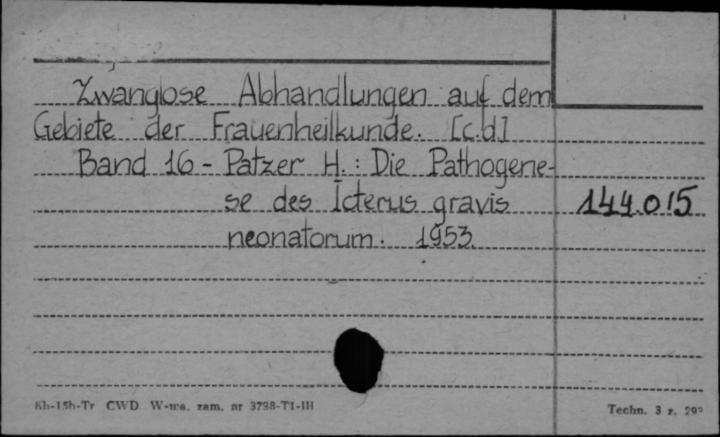 Zwanglose Abhandlungen auf dem
Gebiete der Frauenheilkunde. [c.d]
Band 16 - Patzer H.: Die Pathogene-
se des Icterus gravis 144.015
neonatorum. 1953
Kh-15b-Tr CWD W-wa. zam. nr 3798-T1-III Techn. 3 z.